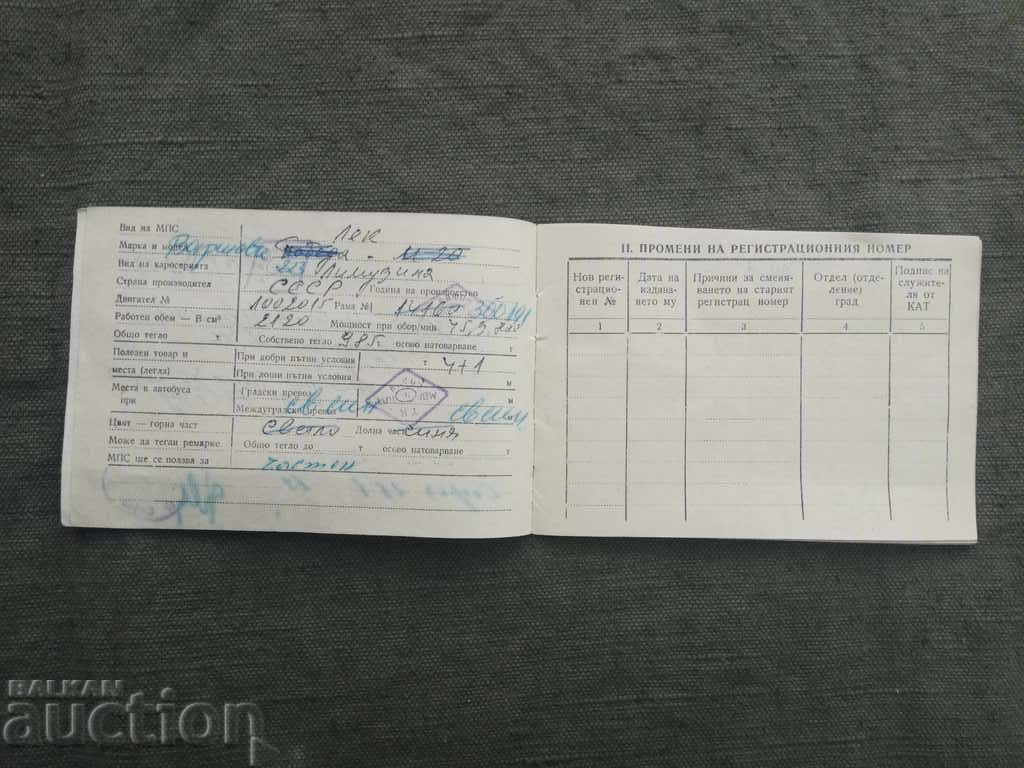 Вид на МПС Лек
Марка и модел М-20
Вид на каросерията Лимузина
Страна производител СССР Година на производство
Двигател № 1002015 Рама №
Работен обем — В см³ 2120 Мощност при обор/мин.
Общо тегло т Собствено тегло 985 т. осово натоварване т
Полезен товар и При добри пътни условия т 4+1
места (легла) При лоши пътни условия м
Места в автобуса Градски превоз м
при Междуградски превоз м
Цвят — горна част Светло Долна част синя
Може да тегли ремарке Общо тегло до т осово натоварване т
МПС ще се ползва за частен
II. ПРОМЕНИ НА РЕГИСТРАЦИОННИЯ НОМЕР
Нов реги- Дата на Причини за сменя- Отдел (отде- Подпис на
страцио- издава- ването на старият ление) служите-
нен № нето му регистрац номер град ля от
КАТ
1 2 3 4 5
BALKAN
auction